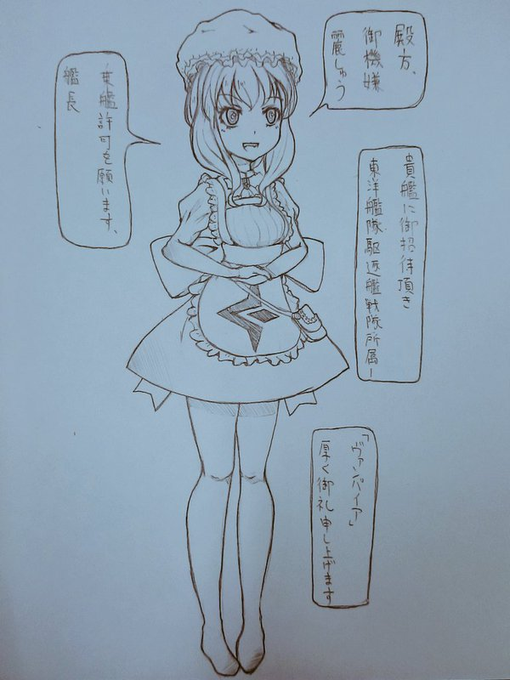 殿方、
御機嫌
麗しゅう
貴艦に御招待頂き
東洋艦隊駆逐艦戦隊所属！
「ヴァンパイア」
厚く御礼申し上げます
乗艦許可を願います、
艦長